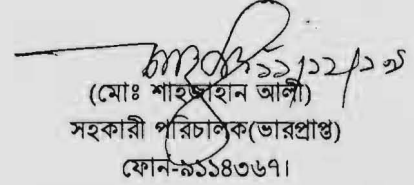 ১১/১২/১৭
(মোঃ শাহজাহান আলী)
সহকারী পরিচালক(ভারপ্রাপ্ত)
ফোন-৯১১৪৩৬৭।